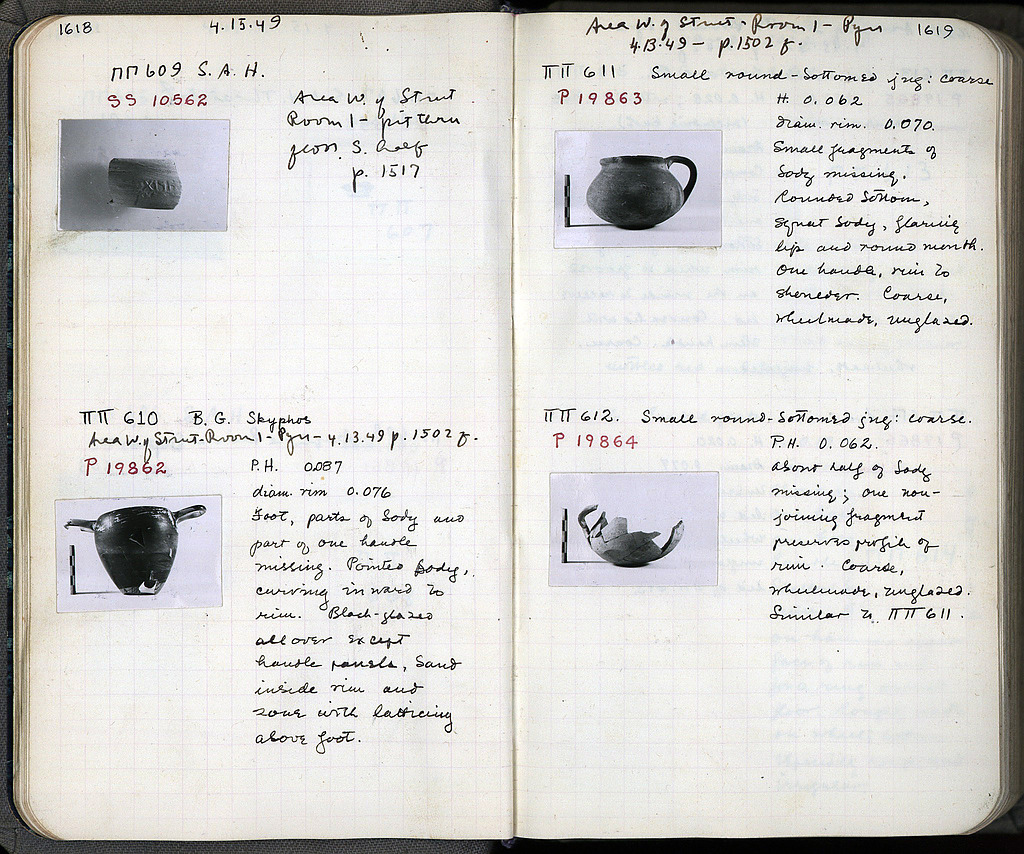 1618
4.15.49
ΠΠ 609 S. A. H.
SS 10562
Area W. of Strut
Room 1 - pit thru
floor, S. half
p. 1517
XIII
ΠΠ 610 B. G. Skyphos
Area W. of Strut - Room 1 - Pyre - 4.13.49 p. 1502 f.
P 19862
P.H. 0.087
diam. rim 0.076
Foot, parts of body and
part of one handle
missing. Pointed body,
curving inward to
rim. Black-glazed
all over except
handle panels, band
inside rim and
zone with latticing
above foot.
Area W. of Strut - Room 1 - Pyre
1619
4.13.49 - p. 1502 f.
ΠΠ 611 Small round-bottomed jug: coarse
P 19863
H. 0.062
diam. rim. 0.070.
Small fragments of
body missing.
Rounded bottom,
squat body, flaring
lip and round mouth.
One handle, rim to
shoulder. Coarse,
wheelmade, unglazed.
ΠΠ 612. Small round-bottomed jug: coarse.
P 19864
P.H. 0.062.
About half of body
missing; one non-
joining fragment
preserves profile of
rim. Coarse,
wheelmade, unglazed.
Similar to ΠΠ 611.